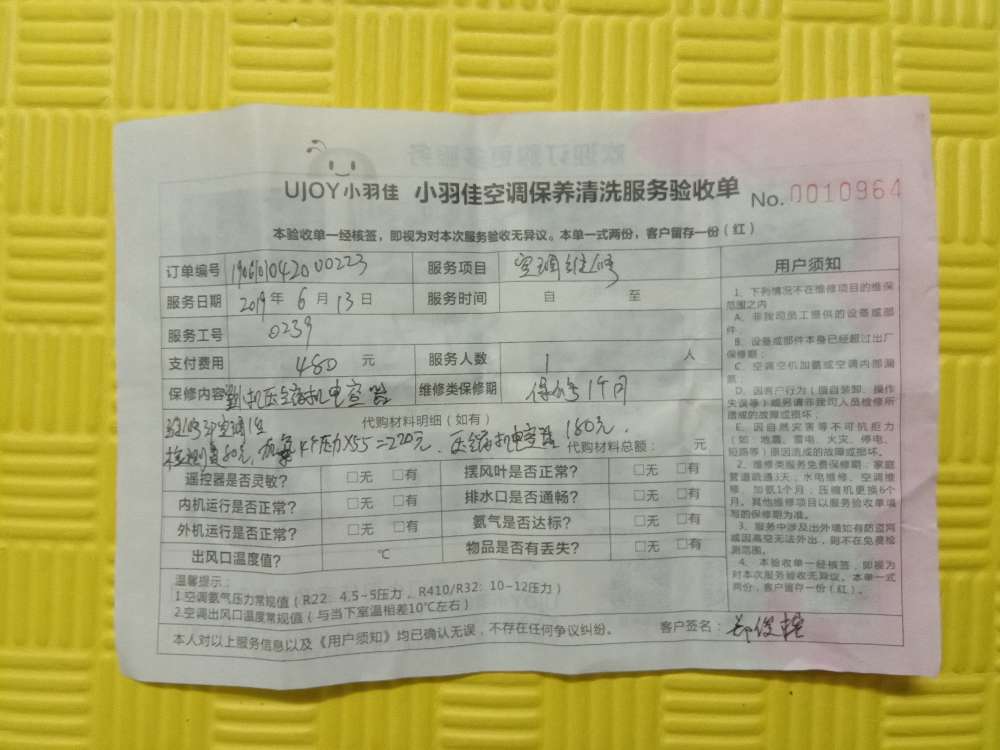 UJOY小羽佳 小羽佳空调保养清洗服务验收单 No.0010964
本验收单一经核签，即视为对本次服务验收无异议。本单一式两份，客户留存一份（红）
订单编号 服务项目 空调维修
服务日期 2019年6月13日 服务时间 自 至
服务工号 0239
支付费用 480 元 服务人数 1 人
保修内容 压缩机电容器 维修类保修期 保修1个月
代购材料明细（如有）
检测费80元， 4个压力X55=220元．压缩机电容器180元
代购材料总额： 元
遥控器是否灵敏？ □无 □有 摆风叶是否正常？ □无 □有
内机运行是否正常？ □无 □有 排水口是否通畅？ □无 □有
外机运行是否正常？ □无 □有 氨气是否达标？ □无 □有
出风口温度值？ ℃ 物品是否有丢失？ □无 □有
温馨提示：
1.空调氨气压力常规值（R22：4.5~5压力，R410/R32：10-12压力）
2.空调出风口温度常规值（与当下室温相差10℃左右）
本人对以上服务信息以及《用户须知》均已确认无误，不存在任何争议纠纷。 客户签名：
用户须知
1、下列情况不在维修项目的维保
范围之内
A、非我司员工提供的设备或部
件
B、设备或部件本身已经超过出厂
保修期；
C、空调空机加氨或空调内部漏
氨；
D、因客户行为（擅自装卸、操作
失误等）或另请非我司人员检修所
造成的故障或损坏；
E、因自然灾害等不可抗拒力
（如：地震、雷电、火灾、停电、
短路等）原因造成的故障或损坏。
2、维修类服务免费保修期：家庭
管道疏通3天，水电维修、空调维
修、加氨1个月；压缩机更换6个
月。其他维修项目以服务验收单填
写的保修期为准。
3、服务中涉及出外墙如有防盗网
或因高空无法外出，则不在免费检
测范围。
4、本验收单一经核签，即视为
对本次服务验收无异议。本单一式
两份，客户留存一份（红）。